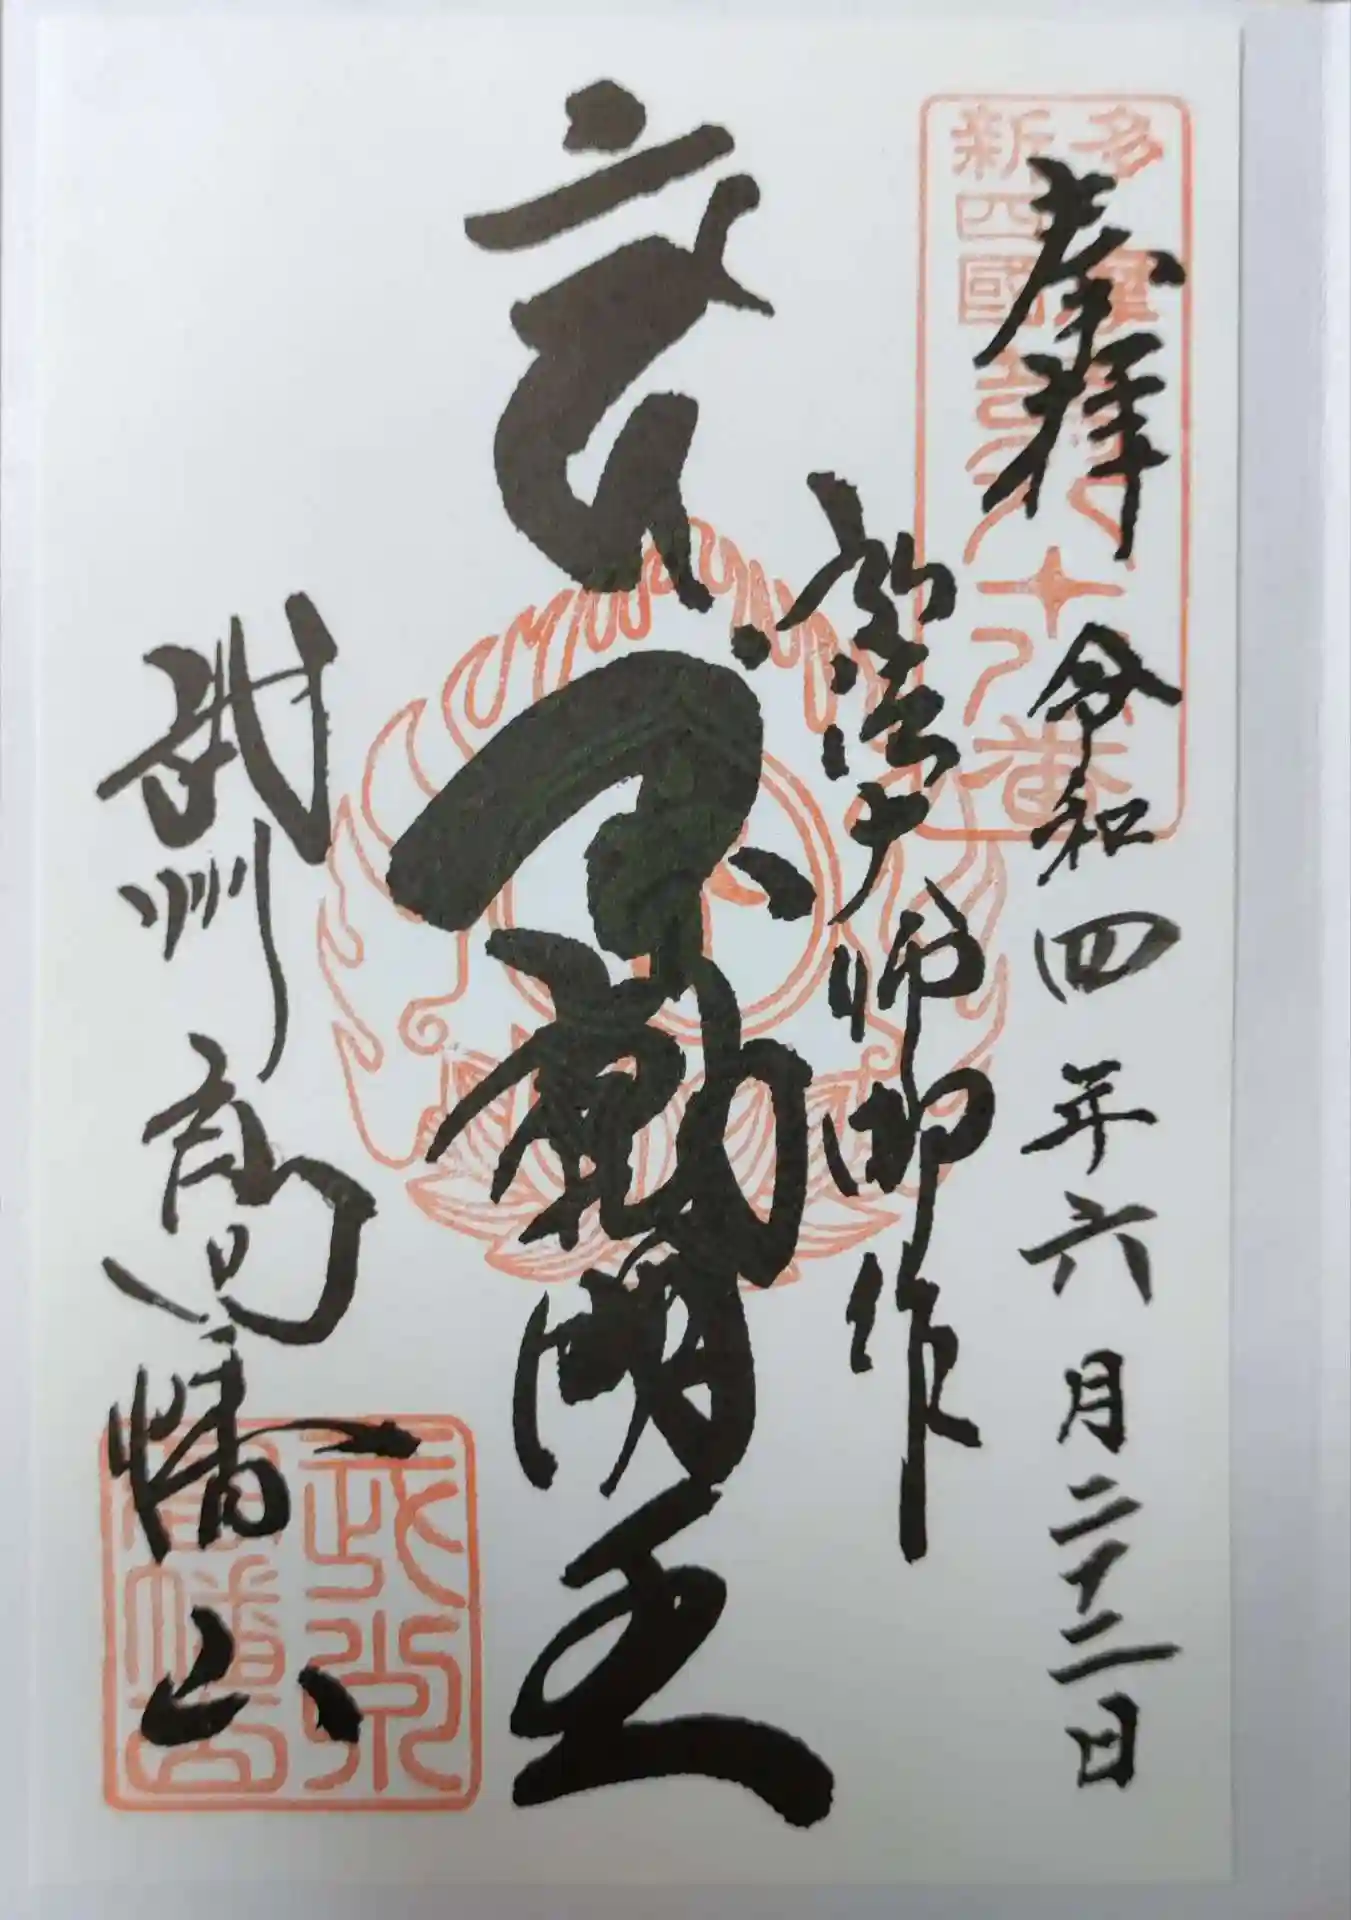 多摩
新四國
第八十八番
奉拝 令和四年六月二十二日
弘法大師御作
不動明王
武州高幡山
武州
高幡山